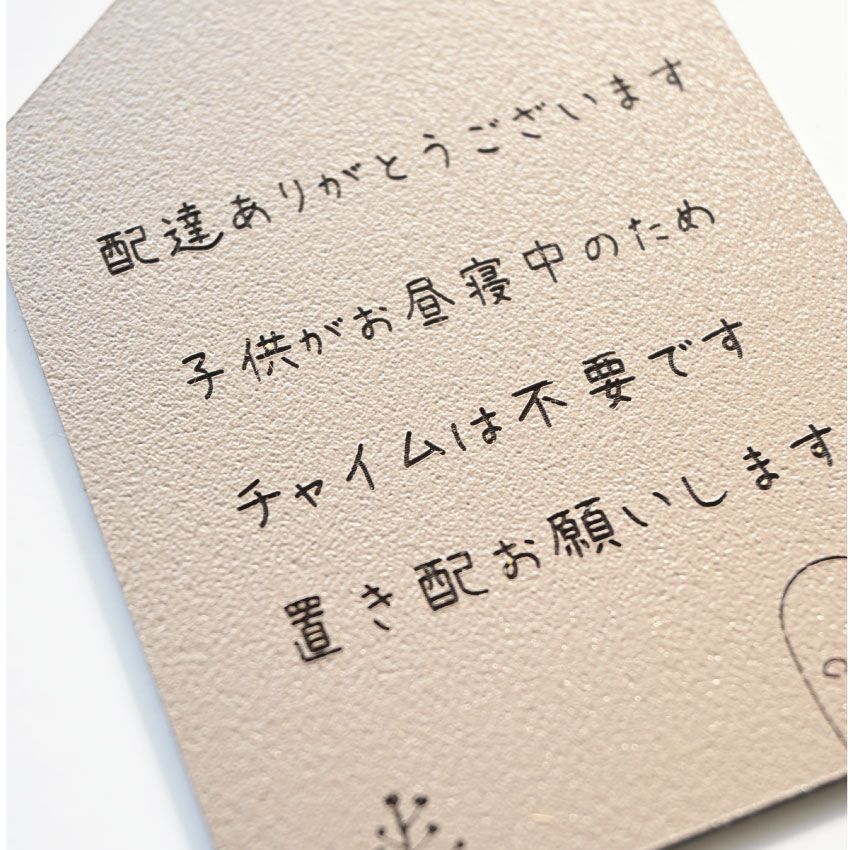 配達ありがとうございます
子供がお昼寝中のため
チャイムは不要です
置き配お願いします